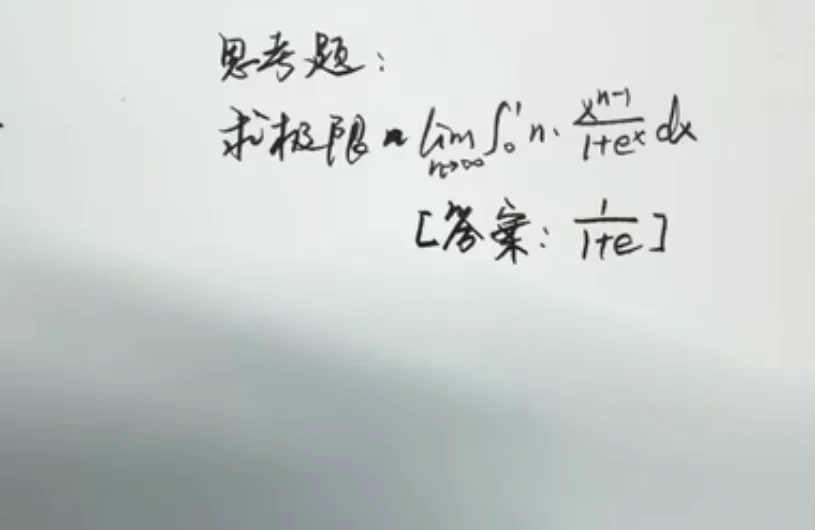 思考题:
求极限 lim_{n→∞} ∫₀¹ n· \frac{x^{n-1}}{1+e^x} dx
[答案: \frac{1}{1+e}]